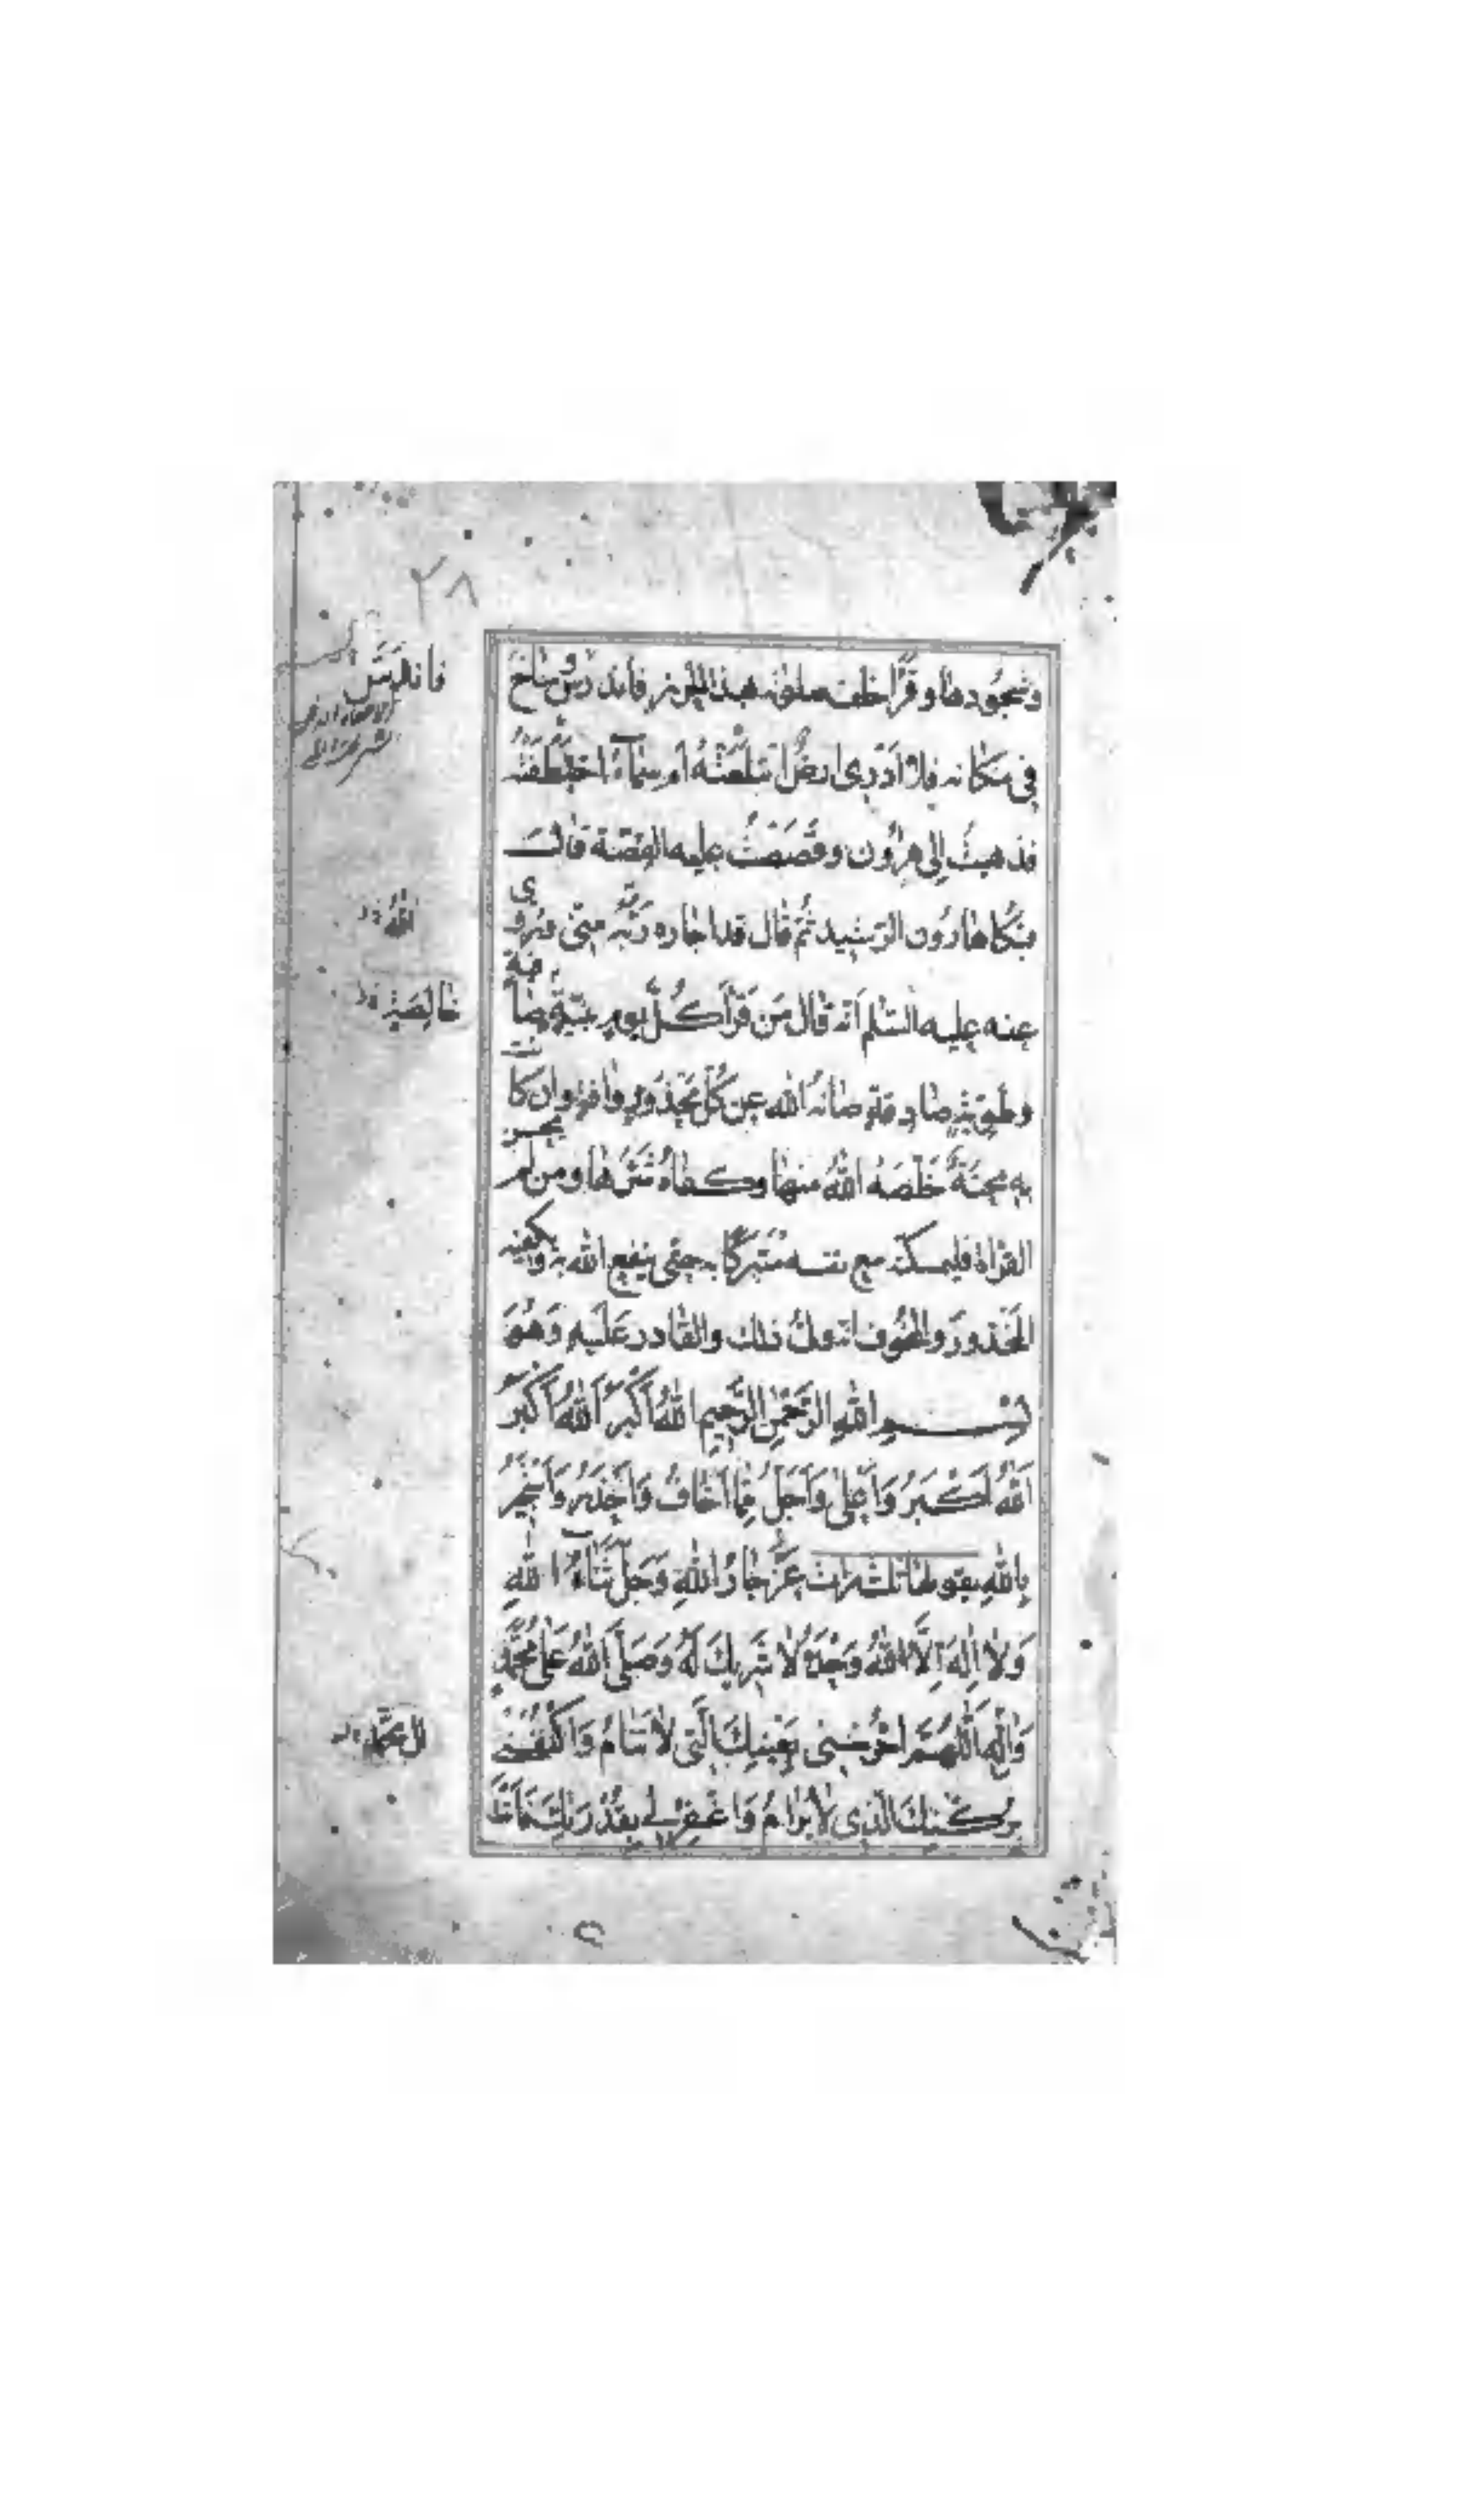 ٢٨
وسجودها وقرأ خلف صلوته هذا الحرز فاندرس وساخ
في مكانه فلا ادري ارض ابتلعته ام سماء اختطفته
فذهبت الى هرون وقصصت عليه القصة قال
فبكا هارون الرشيد ثم قال قد اجاره ربه مني فروي
عنه عليه السلم انه قال من قرأ كل يوم بنية خالصة
وطوية صادقة صانه الله عن كل محذور وان كانت
به محنة خلصه الله منها وكفاه شرها ومن لم يحسن
القراة فليمسكه مع نفسه متبركا به حتى ينفع الله به ويكفيه
المحذور والمخوف انه ولي ذلك والقادر عليه وهو
بسم الله الرحمن الرحيم الله اكبر الله اكبر
الله اكبر واعلى واجل مما اخاف واحذر واستجير
بالله يقولها ثلث مرات عز جار الله وجل ثناء الله
ولا اله الا الله وحده لا شريك له وصلى الله على محمد
واله اللهم احرسني بعينك التي لا تنام واكنفني
بركنك الذي لا يرام واغفر لي بقدرتك فانت
الله
خالصة
ال محمد